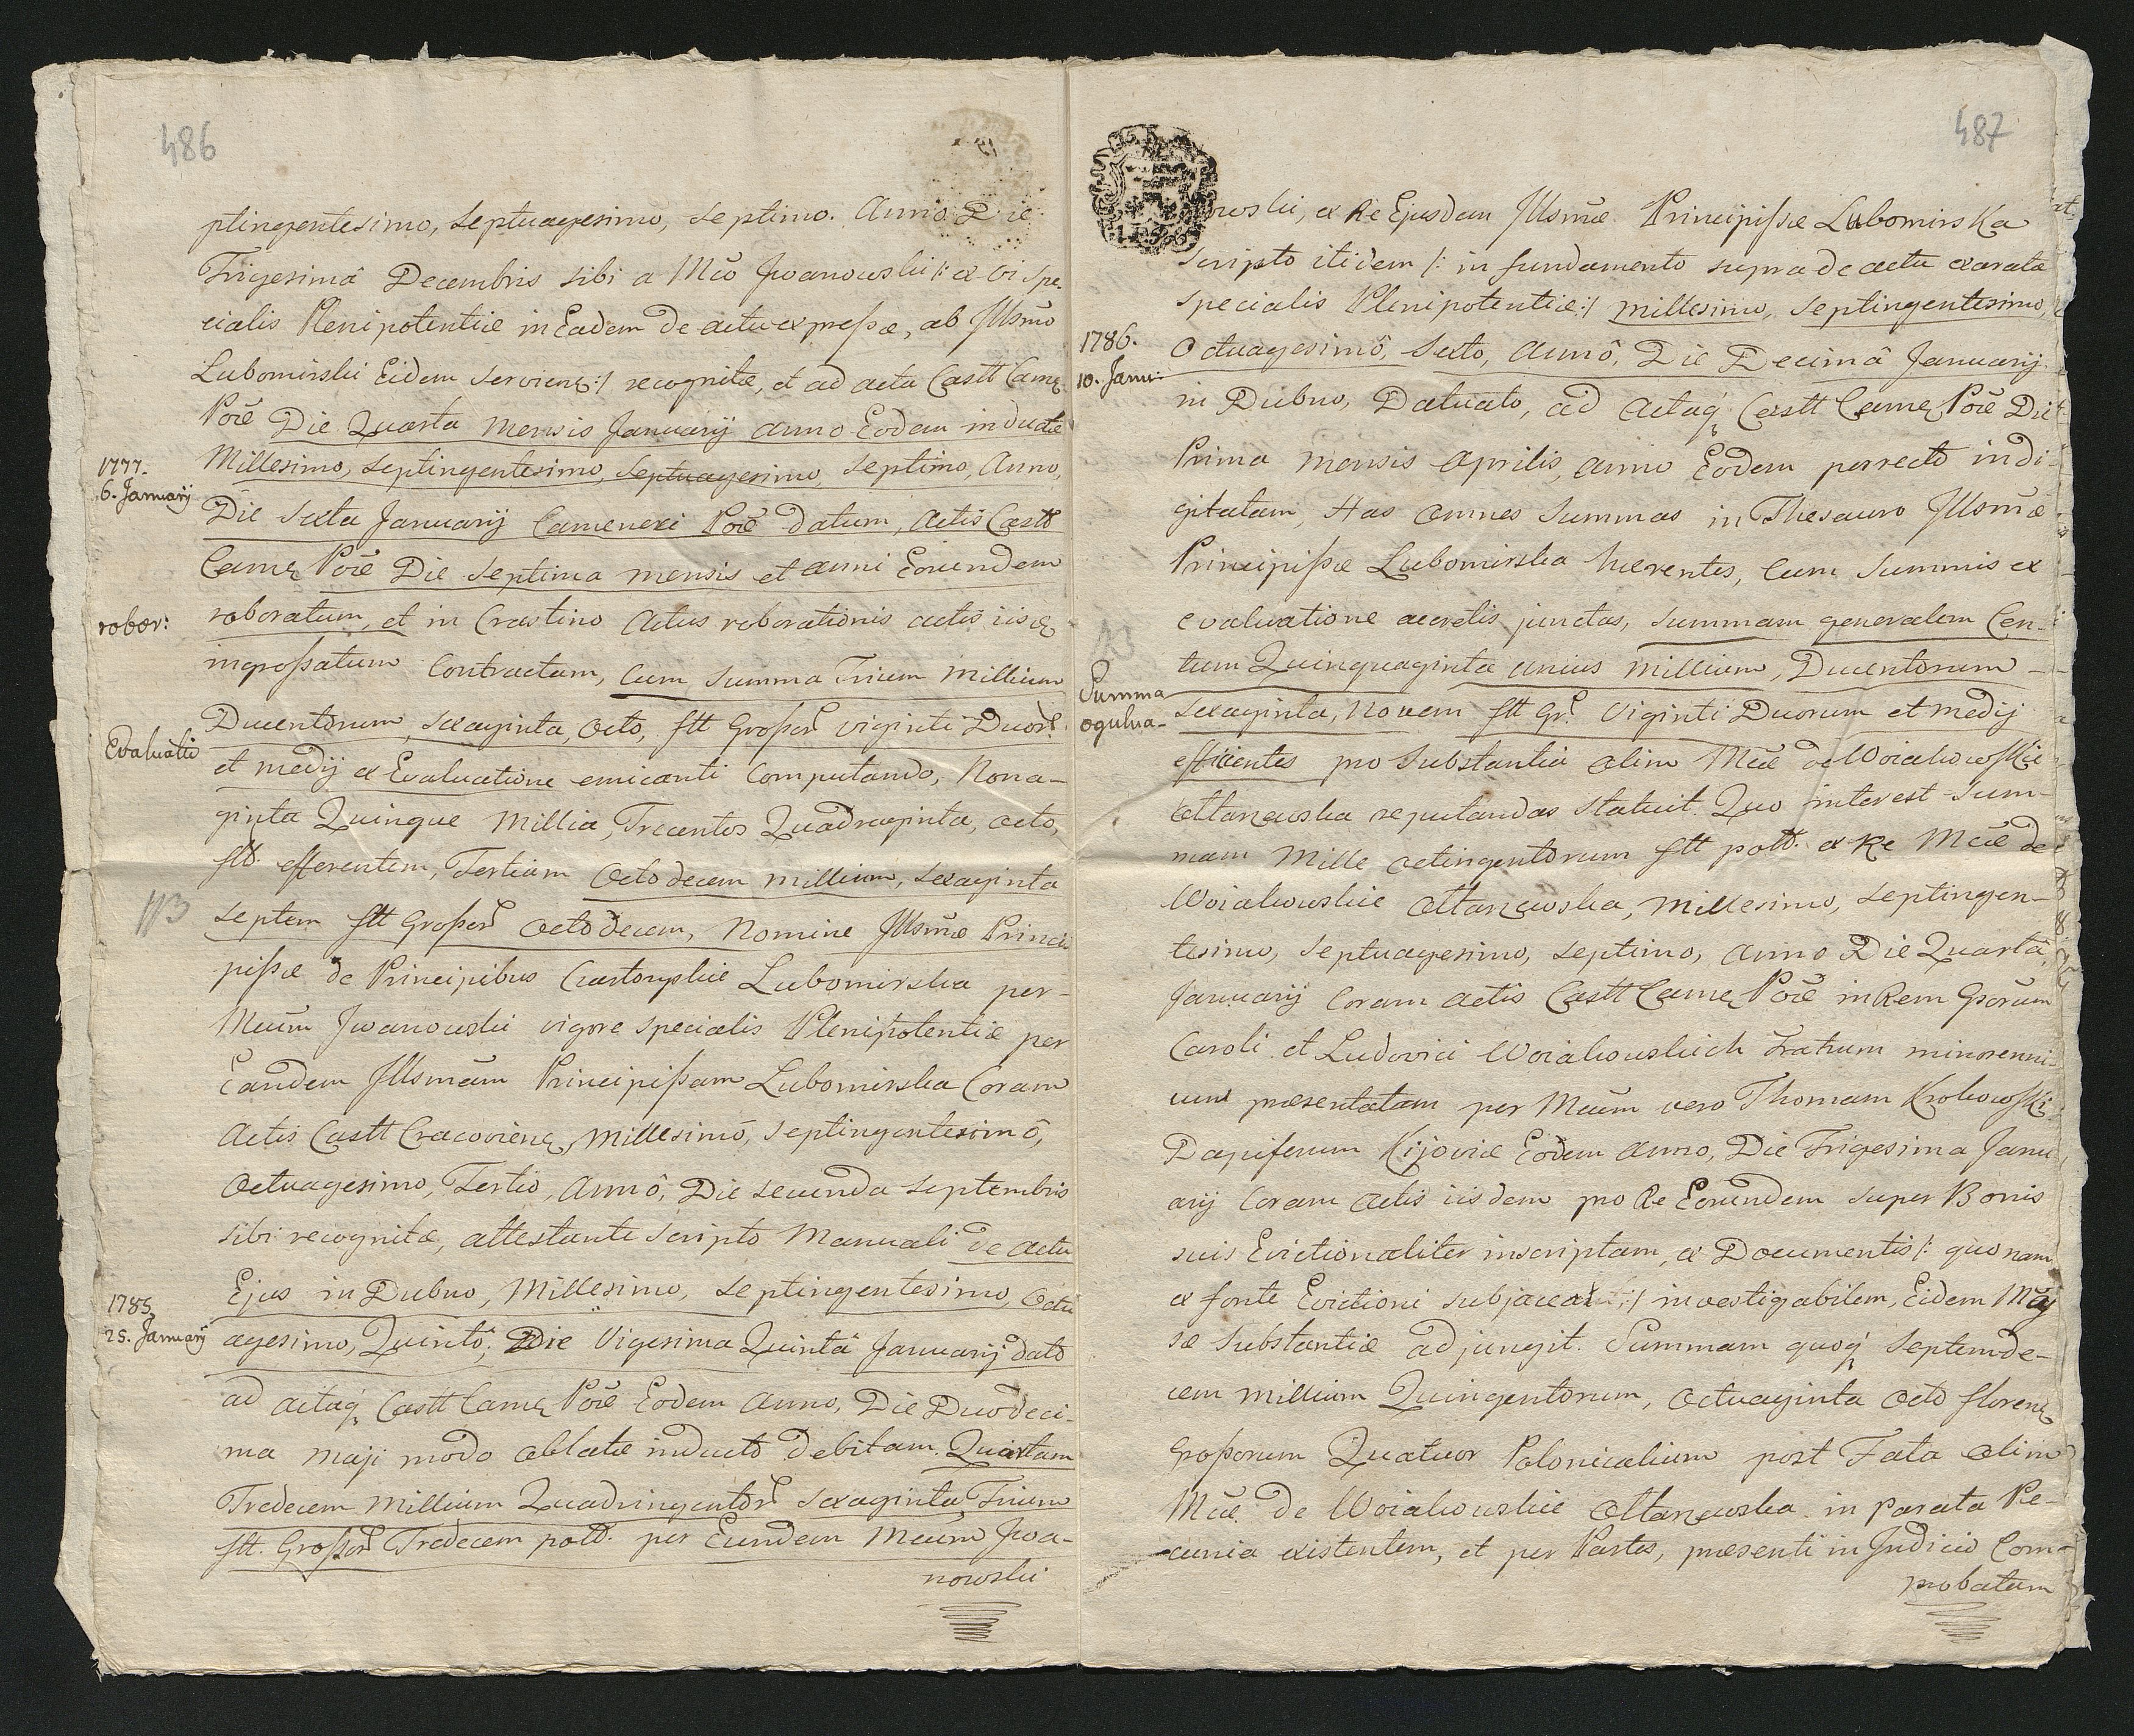 486
ptingentesimo, Septuagesimo, Septimo. Anno Die
Trigesimâ Decembris sibi a Mco Jwanowski /: ex vi spe-
cialis Plenipotentiæ in Eadem de actu expressæ, ab Jllsmo
Lubomirski Eidem serviens :/ recognitæ, et ad acta Castt Camę
Pore Die Quarta Mensis Januarij anno Eodem inductæ
1777.
6. Januarij
Millesimo, Septingentesimo, Septuagesimo, Septimo, Anno,
Die Sexta Januarij Cameneci Pore datum, Actis Castt
Camę Pore Die Septima mensis et anni Eorundem
robor:
roboratum, et in Crastino Actus roborationis actis iisdę
ingrossatum Contractum, Cum Summa Trium Millium
Ducentorum, Sexaginta, Octo, flt Grosser viginti Duor
Evaluatio
et medij ex Evaluatione emicanti Computando, Nona-
ginta Quinque Millia, Trecentos Quadraginta, Octo,
flt. efferentem, Tertiam Octodecem millium, Sexaginta
113
Septem flt Grosser Octodecem, Nomine Jllsmæ Princi
pissæ de Principibus Czartoryskie Lubomirska per-
Mcum Jwanowski vigore specialis Plenipotentiæ per
Eandem Jllsmam Principissam Lubomirska Coram
Actis Castt Cracovienę, Millesimô, Septingentesimô,
Octuagesimo, Tertio, Annô, Die Secunda Septembris
sibi recognitæ, attestante Scripto Manuali de Actu
1785.
25. Januarij
Ejus in Dubno, Millesimo, Septingentesimo, Octu
agesimo, Quinto, Die Vigesima Quintâ Januarij dato
ad actaq Castt Camę Pore Eodem Anno, Die Duodeci-
ma Maji modo oblatæ inducto debitam. Quartam
Tredecem Millium Quadringentor Sexaginta Trium
flt. Grosser Tredecem poltt. per Eundem Mcum Jwa-
nowski
487
nowski, ex Re Ejusdem Jllsmæ Principissæ Lubomirska
Scripto itidem /: in fundamento supra de actu exaratæ
specialis Plenipotentiæ :/ millesimo, Septingentesimo,
1786.
10. Janu:
Octuagesimô, Sexto, Annô, Die Decimâ Januarij
in Dubno, Datuato, ad Actaq Castt Camę Pore Die
Prima Mensis Aprilis, anno Eodem porrecto indi-
gitatam, Has omnes Summas in Thesauro Jllsmæ
Principissæ Lubomirska hærentes, Cum Summis ex
evaluatione accretis junctas, Summam generalem Cen-
tum Quinquaginta unius Millium, Ducentorum -
Summa
Sexaginta, Novem flt Gr. Viginti Duorum et medij
efficientes pro Substantia olim Mcæ de Woiakowskie
Ottanewska reputandas statuit. Quo interest Sum-
mam Mille Octingentorum flt poltt. ex Re Mcæ de
Woiakowskie Ottanewska, Millesimo, Septingen-
tesimo, Septuagesimo, Septimo, Anno Die Quartâ,
Januarij Coram Actis Castt Camę Pore in Rem Gsorum
Caroli et Ludovici Woiakowskich Fratrum minorenni-
um præsentatam per Mcum vero Thomam Krokowski
Dapiferum Kijoviæ Eodem Anno, Die Trigesima Janu
arij Coram Actis iisdem pro Re Eorundem super Bonis
suis Evictionaliter inscriptam, ex Documentis /: quonam
ex fonte Evictioni subjaceat :/ investigabilem, Eidem Maj
sæ Substantiæ adjungit. Summam quoq Septemde-
cem Millium Quingentorum, Octuaginta Octo florenę
Grossorum Quatuor Polonicalium post Fata olim
Mcæ de Woiakowskie Ottanewska in Parata Pe-
cunia existentem, et per Partes, præsenti in Judicio Com-
probatam